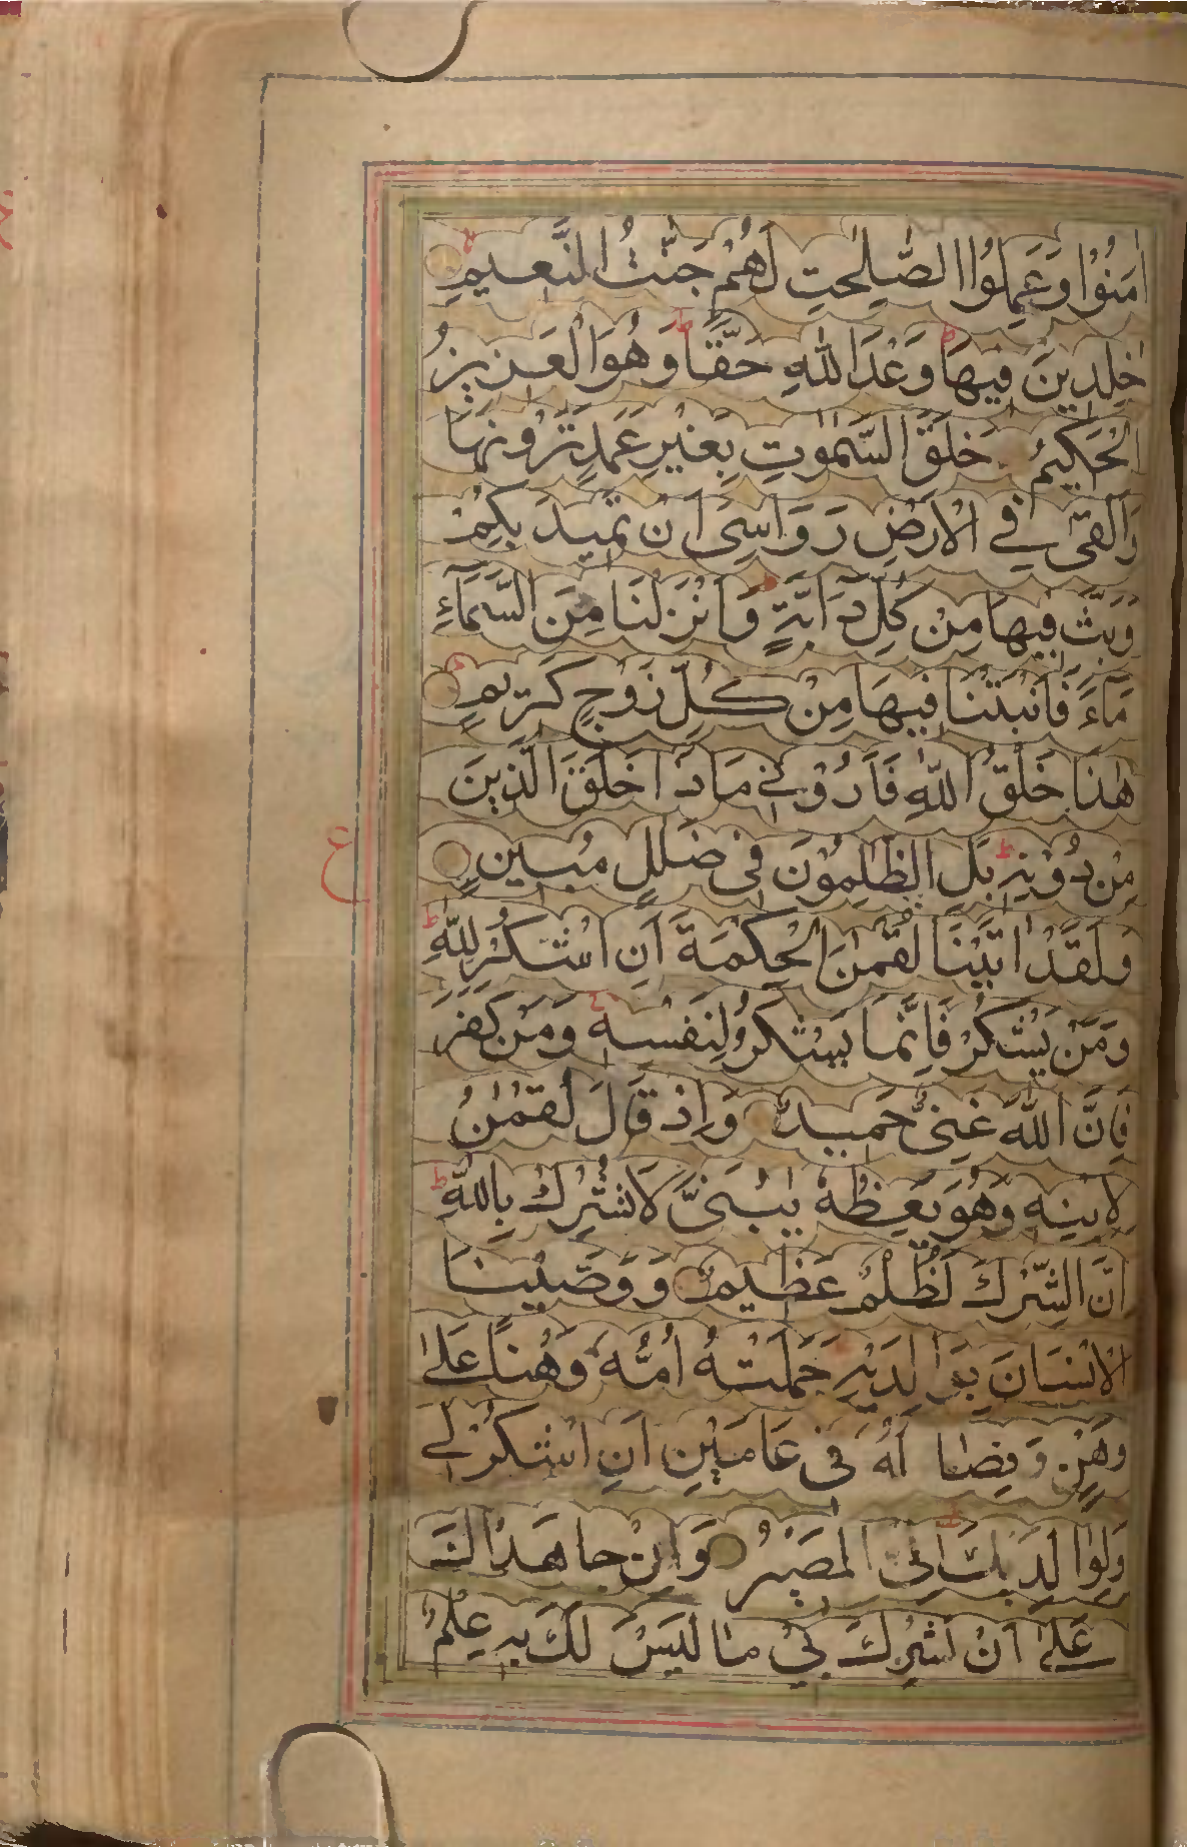 اٰمَنُوْا وَعَمِلُوا الصّٰلِحٰتِ لَهُمْ جَنّٰتُ النَّعِيمِ
خٰلِدِينَ فِيهَا وَعْدَ اللّٰهِ حَقًّا وَهُوَ الْعَزِيزُ
الْحَكِيمُ خَلَقَ السَّمٰوٰتِ بِغَيْرِ عَمَدٍ تَرَوْنَهَا
وَاَلْقٰى فِي الْاَرْضِ رَوَاسِيَ اَنْ تَمِيدَ بِكُمْ
وَبَثَّ فِيهَا مِنْ كُلِّ دَآبَّةٍ وَاَنْزَلْنَا مِنَ السَّمَآءِ
مَآءً فَاَنْبَتْنَا فِيهَا مِنْ كُلِّ زَوْجٍ كَرِيمٍ
هٰذَا خَلْقُ اللّٰهِ فَاَرُوْنِي مَاذَا خَلَقَ الَّذِينَ
مِنْ دُوْنِهِ بَلِ الظّٰلِمُوْنَ فِي ضَلٰلٍ مُبِينٍ
ع
وَلَقَدْ اٰتَيْنَا لُقْمٰنَ الْحِكْمَةَ اَنِ اشْكُرْ لِلّٰهِ
وَمَنْ يَشْكُرْ فَاِنَّمَا يَشْكُرُ لِنَفْسِهٖ وَمَنْ كَفَرَ
فَاِنَّ اللّٰهَ غَنِيٌّ حَمِيدٌ وَاِذْ قَالَ لُقْمٰنُ
لِابْنِهٖ وَهُوَ يَعِظُهُ يٰبُنَيَّ لَا تُشْرِكْ بِاللّٰهِ
اِنَّ الشِّرْكَ لَظُلْمٌ عَظِيمٌ وَوَصَّيْنَا
الْاِنْسَانَ بِوَالِدَيْهِ حَمَلَتْهُ اُمُّهُ وَهْنًا عَلٰى
وَهْنٍ وَفِصَالُهُ فِي عَامَيْنِ اَنِ اشْكُرْ لِي
وَلِوَالِدَيْكَ اِلَيَّ الْمَصِيرُ وَاِنْ جَاهَدَاكَ
عَلٰى اَنْ تُشْرِكَ بِي مَا لَيْسَ لَكَ بِهٖ عِلْمٌ